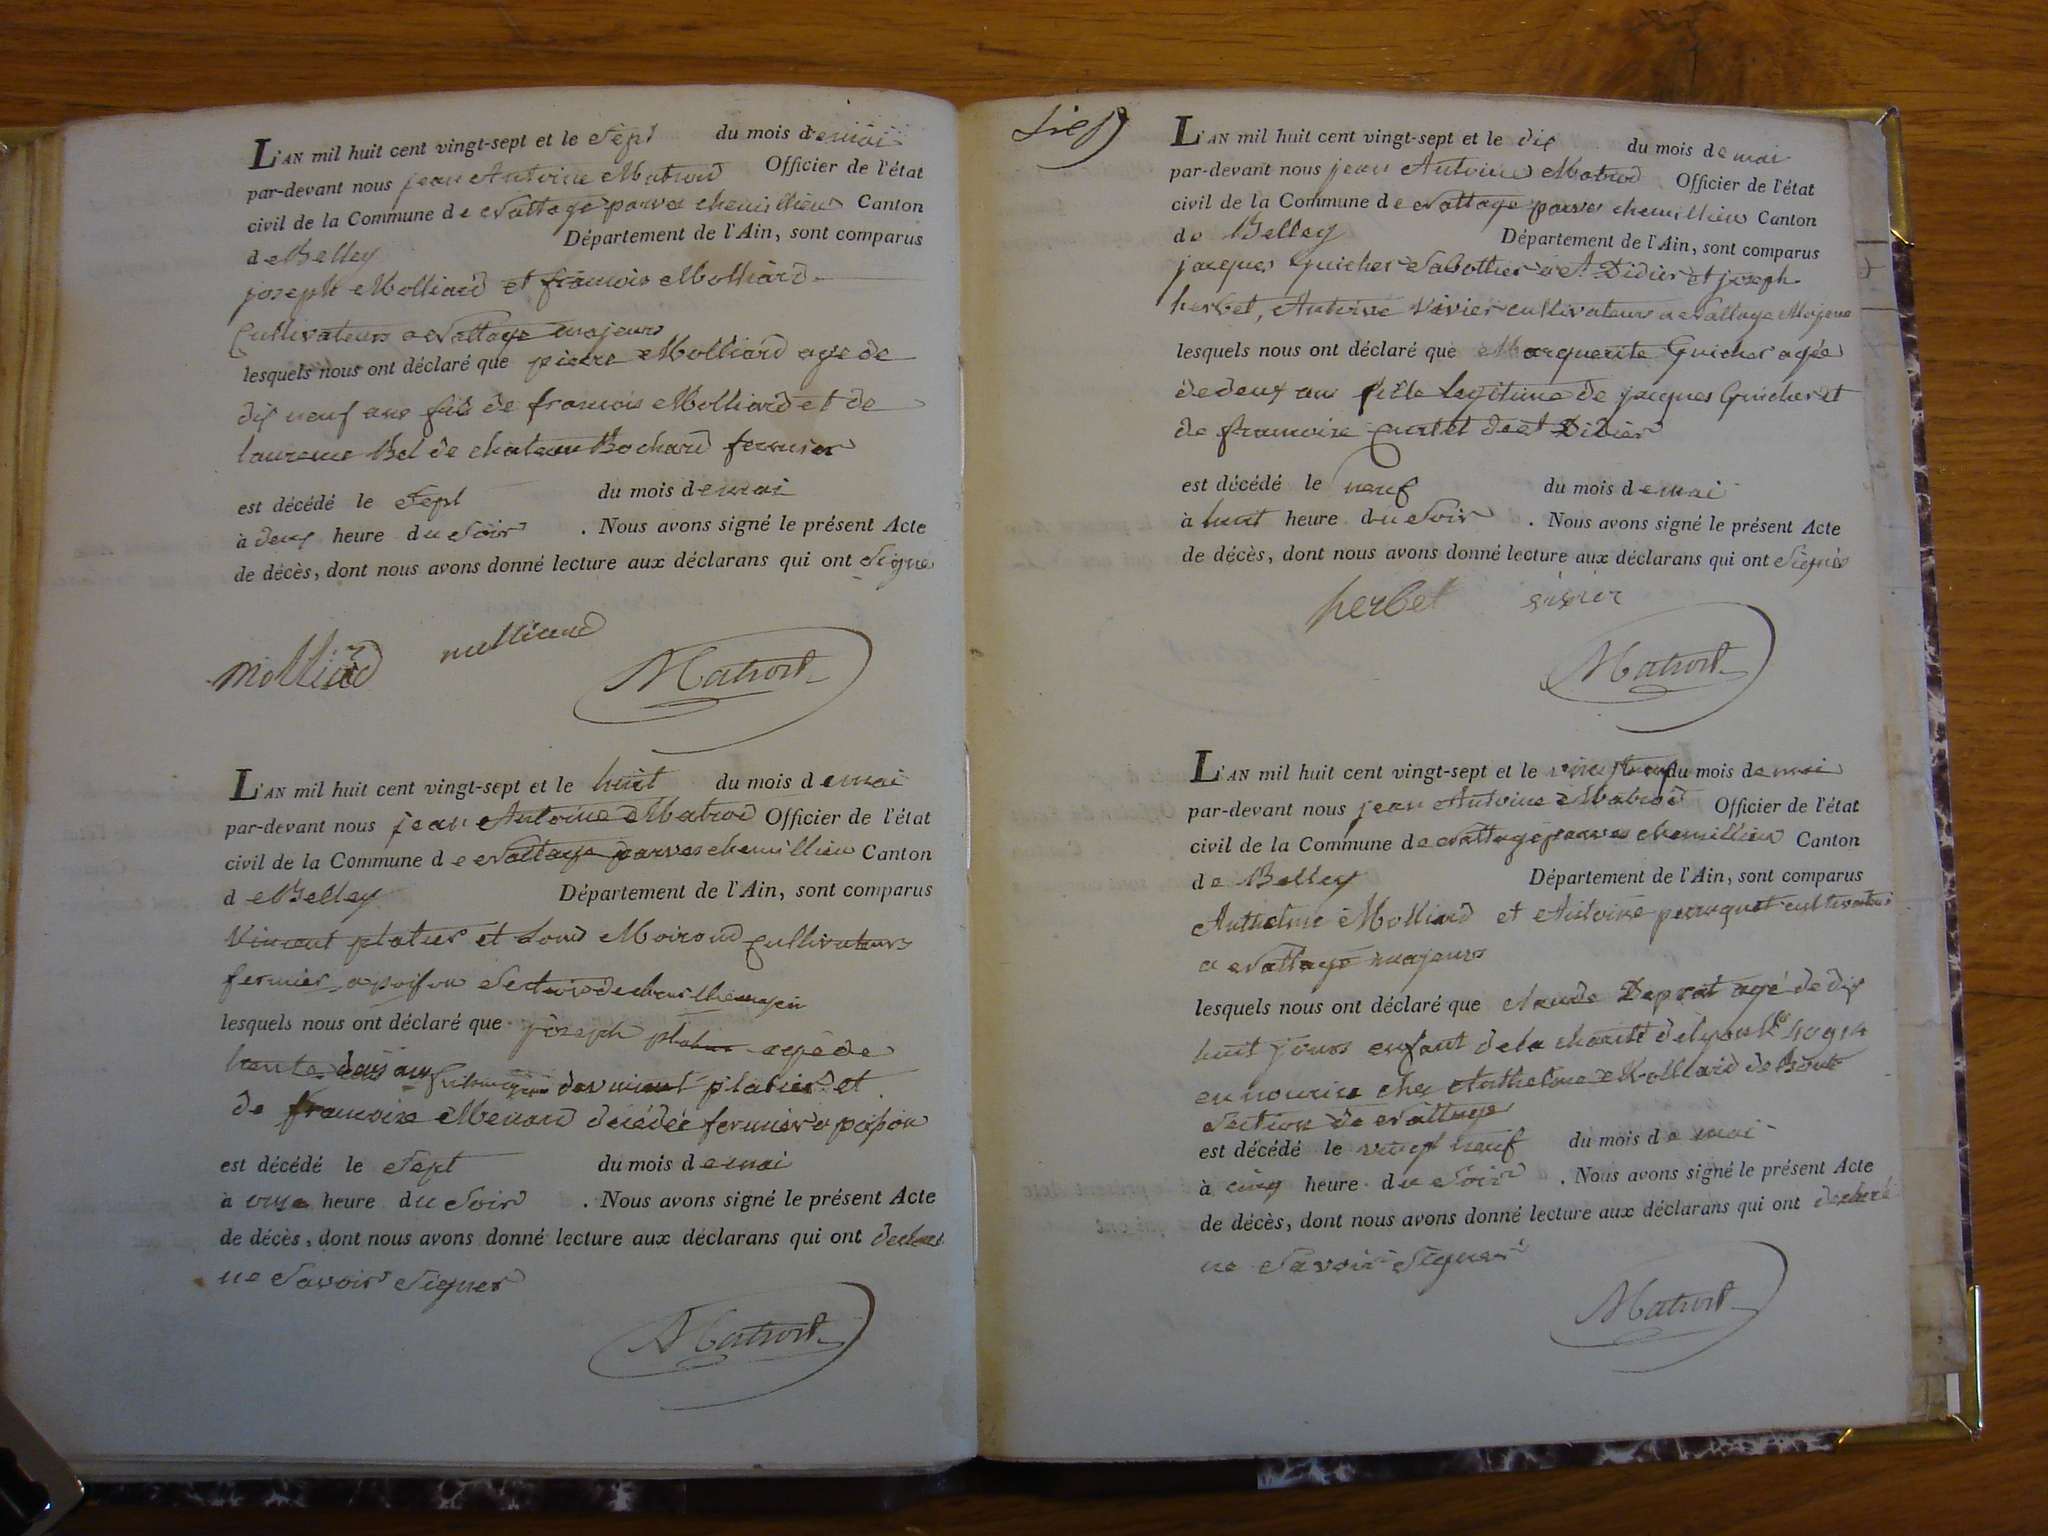 L'AN mil huit cent vingt-sept et le Sept du mois de mai
par-devant nous jean Antoine Matrod Officier de l'état
civil de la Commune de Nattage parves chemillieu Canton
de Belley Département de l'Ain, sont comparus
joseph Molliard et francois Molliard
Cultivateurs a Nattage majeurs
lesquels nous ont déclaré que pierre Molliard age de
dix neuf ans fils de francois Molliard et de
laurence Bel de chateau Bochard fermier
est décédé le Sept du mois de mai
à deux heure du Soir . Nous avons signé le présent Acte
de décès, dont nous avons donné lecture aux déclarans qui ont Signe
Molliard molliard Matrod
L'AN mil huit cent vingt-sept et le huit du mois de mai
par-devant nous jean Antoine Matrod Officier de l'état
civil de la Commune de Nattage parves chemillieu Canton
de Belley Département de l'Ain, sont comparus
Vincent platier et Louis Moiroud Cultivateurs
fermier a poison Section de
lesquels nous ont déclaré que joseph platier agé de
trente deux ans de vincent platier et
de francoise Menard décédée fermier a poison
est décédé le Sept du mois de mai
à onze heure du Soir . Nous avons signé le présent Acte
de décès, dont nous avons donné lecture aux déclarans qui ont
ne Savoir Signer
Matrod
L'AN mil huit cent vingt-sept et le dix du mois de mai
par-devant nous jean Antoine Matrod Officier de l'état
civil de la Commune de Nattage parves chemillieu Canton
de Belley Département de l'Ain, sont comparus
jacques Guicher Sabottier a St Didier et joseph
herbet, Antoine Vivier cultivateurs a Nattage Majeurs
lesquels nous ont déclaré que Marguerite Guicher agée
de deux ans fille legitime de jacques Guicher et
de francoise Curtet de St Didier
est décédé le neuf du mois de mai
à huit heure du Soir . Nous avons signé le présent Acte
de décès, dont nous avons donné lecture aux déclarans qui ont Signés
herbet vivier
Matrod
L'AN mil huit cent vingt-sept et le vingt neuf du mois de mai
par-devant nous jean Antoine Matrod Officier de l'état
civil de la Commune de Nattage parves chemillieu Canton
de Belley Département de l'Ain, sont comparus
Anthelme Molliard et Antoine perroquet cultivateurs
a Nattage majeurs
lesquels nous ont déclaré que claude Deprat agé de dix
huit jours enfant de la charité de lyon
en nourice chez Anthelme Molliard de Bout
Section de Nattage
est décédé le vingt neuf du mois de mai
à cinq heure du Soir . Nous avons signé le présent Acte
de décès, dont nous avons donné lecture aux déclarans qui ont
ne Savoir Signer
Matrod